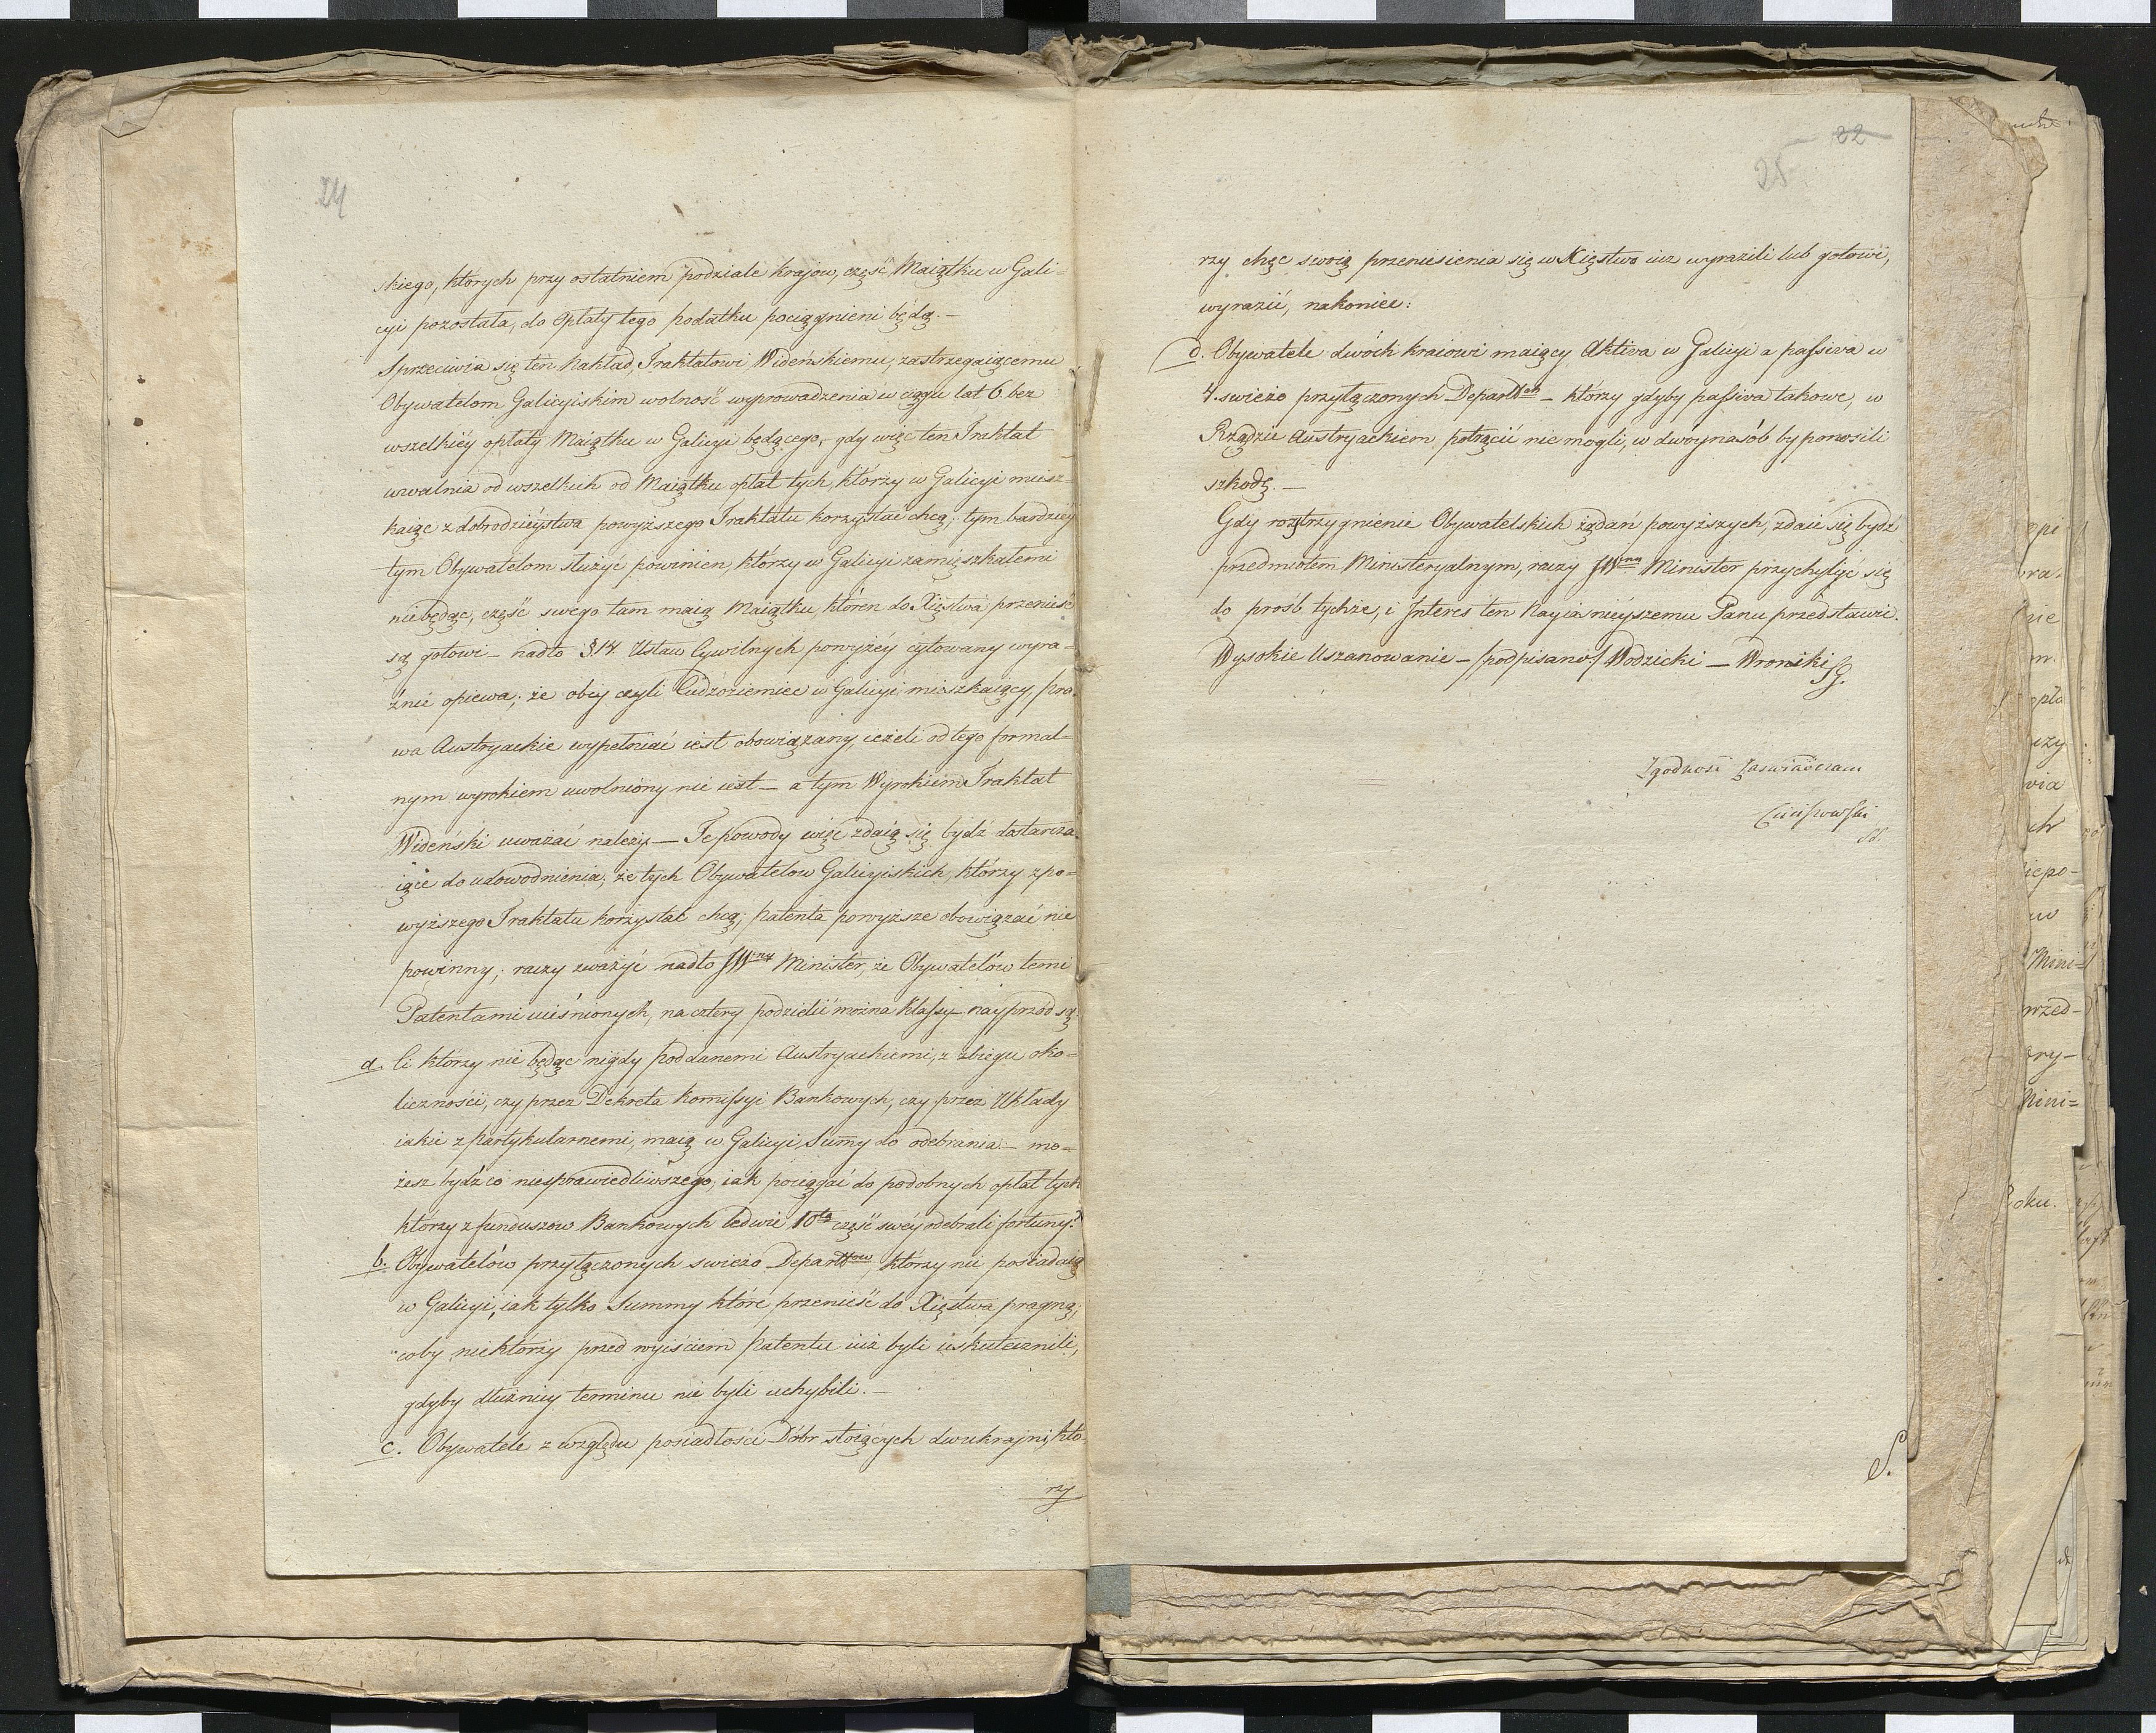 24
skiego, których przy ostatniem podziale krajow, część Maiątku w Gali=
cyi pozostała, do Opłaty tego podatku pociągnieni będą.—
Sprzeciwia się ten Nakład, Traktatowi Wideńskiemu, zastrzegaiącemu
Obywatelom Galicyiskim wolność wyprowadzenia w ciągu lat 6. bez
wszelkiéy opłaty Maiątku w Galicyi będącego, gdy więc ten Traktat
uwalnia od wszelkich od Maiątku opłat tych, którzy w Galicyi miesz=
kaiąc z dobrodzieystwa powyższego Traktatu korzystać chcą; tym bardziey
tym Obywatelom służyć powinien, którzy w Galicyi zamieszkałemi
niebędąc, część swego tam maią Maiątku, któren do Xięstwa przenieść
są gotowi — nadto §14. Ustaw Cywilnych powyżéy cytowany wyra=
źnie opiewa; że obcy czyli Cudzoziemiec w Galicyi mieszkaiący, pra=
wa Austryackie wypełniać iest obowiązany, ieżeli od tego formal=
nym wyrokiem uwolniony nie iest — a tym Wyrokiem Traktat
Wideński uważać należy — Te powody więc zdaią się bydź dostarcza=
iące do udowodnienia, że tych Obywatelow Galicyiskich, którzy z po=
wyższego Traktatu korzystać chcą; patenta powyższe obowiązać nie
powinny; raczy zważyć nadto JWny Minister, że Obywatelów temi
Patentami uciśnionych, na cztery podzielić można Klassy— nayprzód są
a. Ci którzy nie będąc nigdy poddanemi Austryackiemi, z zbiegu oko=
liczności, czy przez Dekreta Komissyi Bankowych, czy przez Układy
iakie z partykularnemi, maią w Galicyi Summy do odebrania — mo=
żesz bydź co niesprawiedliwszego, iak pociągać do podobnych opłat tych
którzy z funduszow Bankowych ledwie 10tą część swéy odebrali fortuny?
b. Obywatelów przyłączonych swieżo Departtow, którzy nie posiadaią
w Galicyi, iak tylko Summy które przenieść do Xięstwa pragną;
coby niektórzy przed wyiściem Patentu iuż byli uskutecznili,
gdyby dłużnicy terminu nie byli uchybili.—
c. Obywatele z względu posiadłości Dóbr stoiących dwukrajni, któ=
rzy
22
25
rzy chęc swoią przeniesienia się w Xięstwo iuż wyrazili lub gotowi,
wyrazić, nakoniec:
d. Obywatele dwóch kraiowi maiący Aktiva w Galicyi a passiva w
4. swieżo przyłączonych Departtach — którzy gdyby passiva takowe, w
Rządzie Austryackiem potrącić nie mogli, w dwóynasób by ponosili
szkodę.—
Gdy rozstrzygnienie Obywatelskich żądań powyższych, zdaie się bydź
przedmiotem Ministeryalnym, raczy JWny Minister przychylić się
do prośb tychże, i Interes ten Nayiaśnieyszemu Panu przedstawić.
Wysokie Uszanowanie — /podpisano/ Wodzicki — Wroniki SJ.
Zgodność Zaświadczam